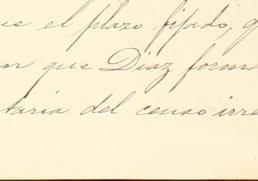 el plazo fijado, q
que Diaz form
taria del censo irre